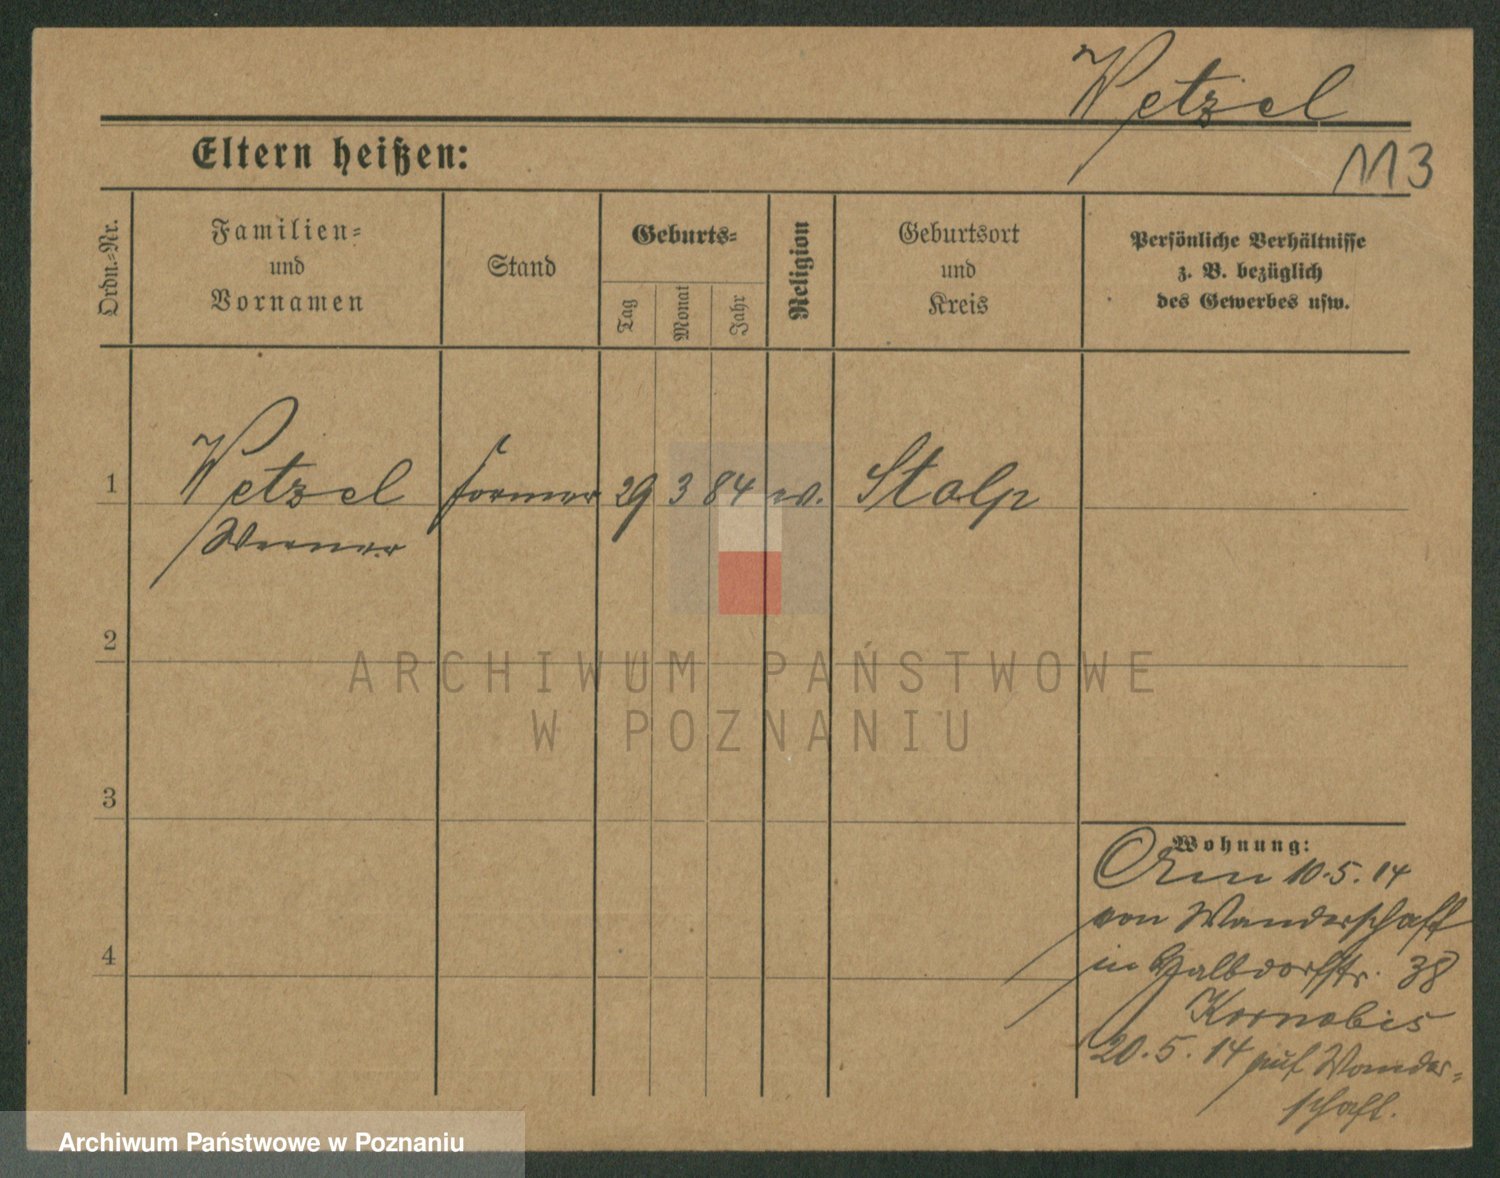 Wetzel
113
Eltern heißen:
Ordn.-Nr.
Familien-
und
Vornamen
Stand
Geburts-
Tag
Monat
Jahr
Religion
Geburtsort
und
Kreis
Persönliche Verhältnisse
z. B. bezüglich
des Gewerbes usw.
1 Wetzel Former 29 3 84 ev. Stolp
Werner
2
3
4
Wohnung:
Am 10.5.14
von Wanderschaft
in Halbdorfstr. 38
Kornobis
20.5.14 auf Wander-
schaft.
ARCHIWUM PAŃSTWOWE
W POZNANIU
Archiwum Państwowe w Poznaniu